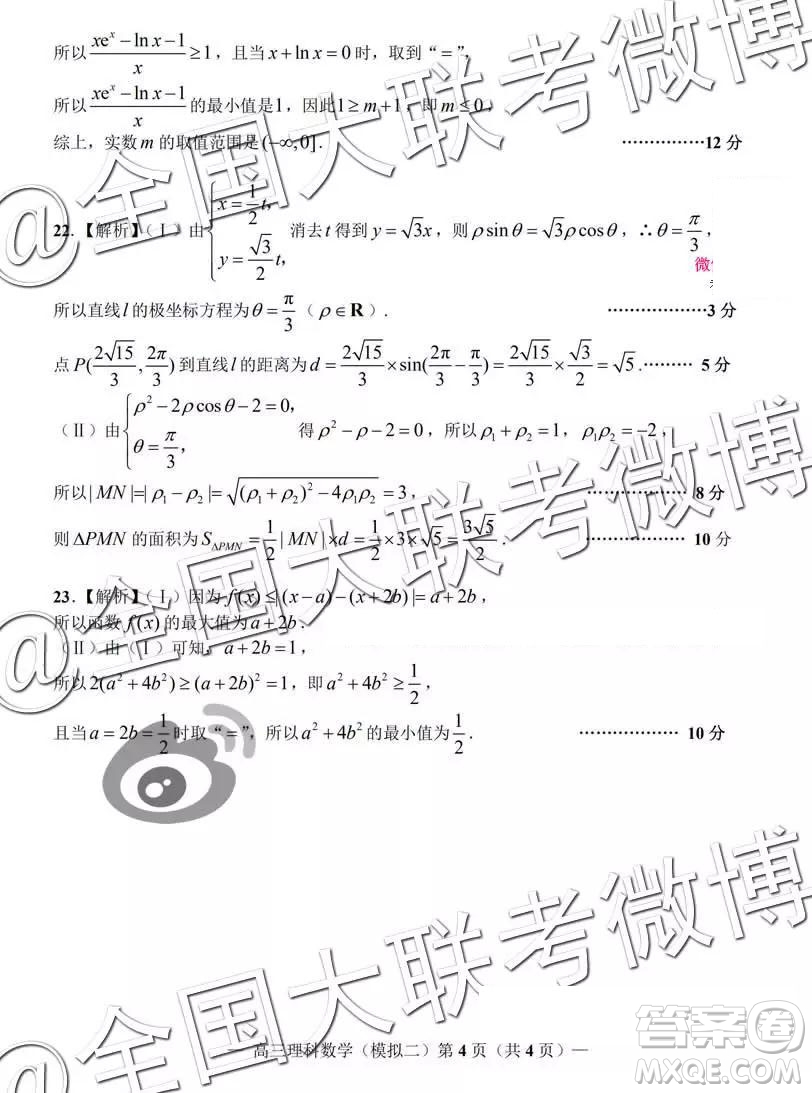 所以 (xe^x − ln x − 1)/x ≥ 1，且当 x + ln x = 0 时，取到“=”，
所以 (xe^x − ln x − 1)/x 的最小值是1，因此1 ≥ m + 1，即 m ≤ 0，
综上，实数 m 的取值范围是 (−∞,0]． ···············12 分
22．【解析】（Ⅰ）由 { x = 1/2 t, y = √3/2 t, 消去 t 得到 y = √3x，则 ρ sin θ = √3ρ cos θ，∴ θ = π/3，
微
所以直线 l 的极坐标方程为 θ = π/3（ρ ∈ R）． ··················3 分
点 P(2√15/3, 2π/3) 到直线 l 的距离为 d = 2√15/3 × sin(2π/3 − π/3) = 2√15/3 × √3/2 = √5．········· 5 分
（Ⅱ）由 { ρ² − 2ρ cos θ − 2 = 0, θ = π/3, 得 ρ² − ρ − 2 = 0，所以 ρ₁ + ρ₂ = 1，ρ₁ρ₂ = −2，
所以 | MN |=| ρ₁ − ρ₂ |= √((ρ₁ + ρ₂)² − 4ρ₁ρ₂) = 3， ·················· 8 分
则 ΔPMN 的面积为 S_ΔPMN = 1/2 | MN | × d = 1/2 × 3 × √5 = 3√5/2． ·················· 10 分
23．【解析】（Ⅰ）因为 f(x) ≤ | (x − a) − (x + 2b) |= a + 2b，
所以函数 f(x) 的最大值为 a + 2b．
（Ⅱ）由（Ⅰ）可知，a + 2b = 1，
所以 2(a² + 4b²) ≥ (a + 2b)² = 1，即 a² + 4b² ≥ 1/2，
且当 a = 2b = 1/2 时取“=”，所以 a² + 4b² 的最小值为 1/2． ·················· 10 分
@全国大联考微博
@全国大联考微博
答案卷
MXQE.COM
— 高三理科数学（模拟二）第 4 页（共 4 页）—